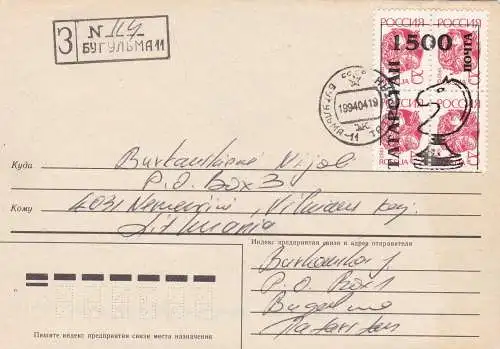 З N 114
БУГУЛЬМА 11
РОССИЯ РОССИЯ
1500
ПОЧТА
ТАТАРСТАН
БУГУЛЬМА-11
19940419
Куда
P.O. Box 3
Кому 4031 Nemencine, Vilniaus
Lithuania
Индекс предприятия связи и адрес отправителя
P.O. Box 1
Bugulma
Tatarstan
Пишите индекс предприятия связи места назначения